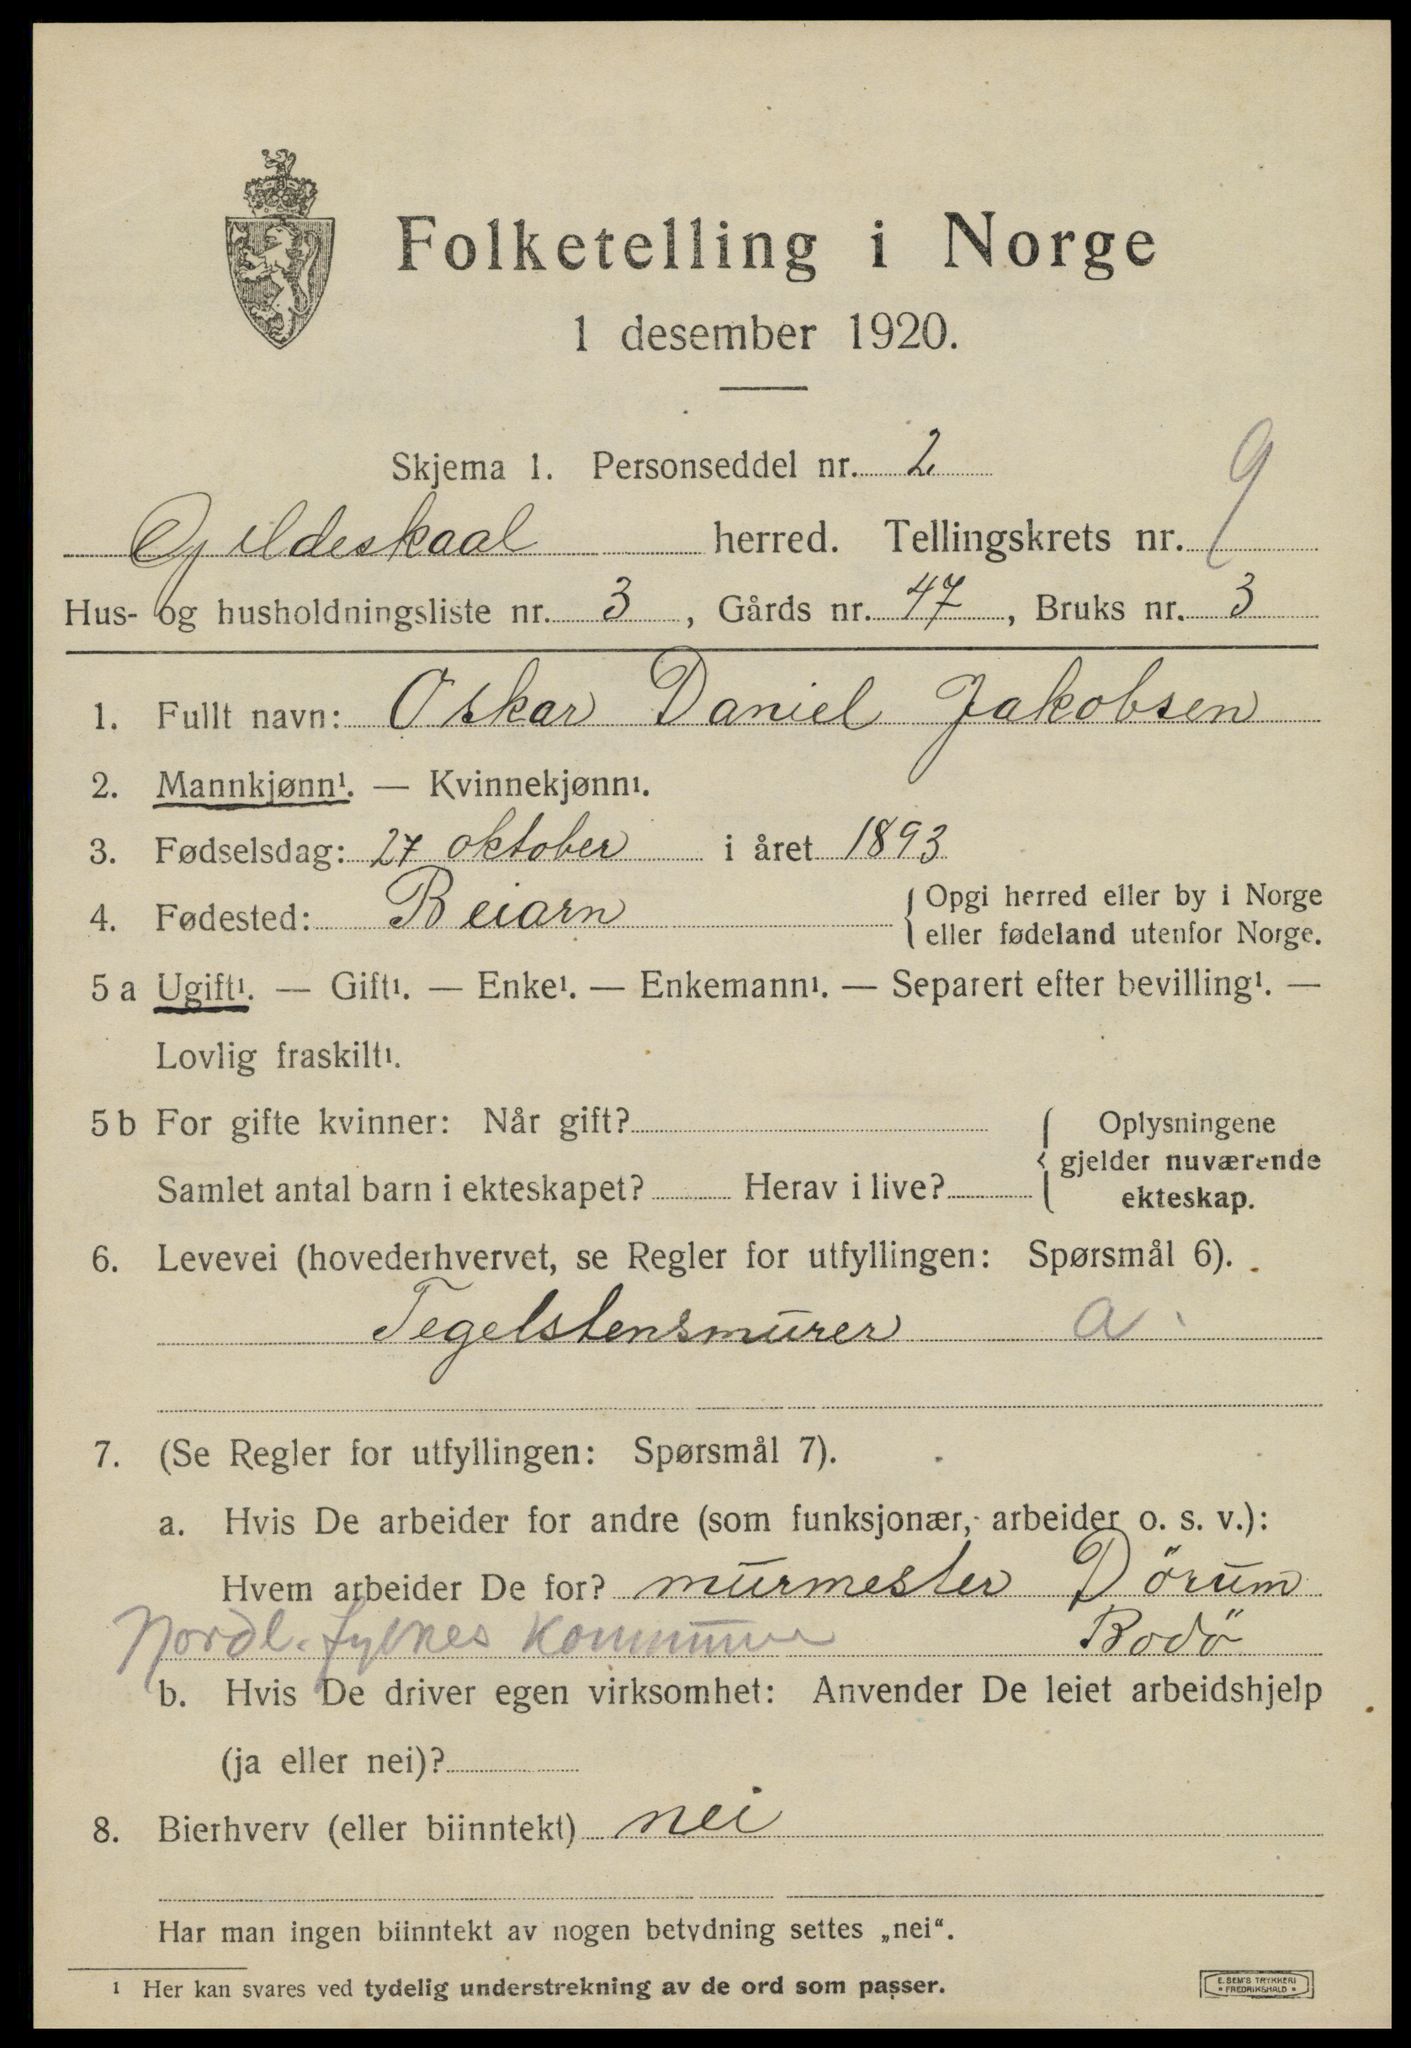 Folketelling i Norge
1 desember 1920.
Skjema 1. Personseddel nr. 2
Gildeskaal herred. Tellingskrets nr. 9
Hus- og husholdningsliste nr. 3, Gårds nr. 47, Bruks nr. 3
1. Fullt navn: Oskar Daniel Jakobsen
2. Mannkjønn¹. — Kvinnekjønn¹.
3. Fødselsdag: 27 oktober i året 1893
4. Fødested: Beiarn { Opgi herred eller by i Norge
eller fødeland utenfor Norge.
5 a Ugift¹. — Gift¹. — Enke¹. — Enkemann¹. — Separert efter bevilling¹. —
Lovlig fraskilt¹.
5 b For gifte kvinner: Når gift? { Oplysningene
gjelder nuværende
Samlet antal barn i ekteskapet? Herav i live? ekteskap.
6. Levevei (hovederhvervet, se Regler for utfyllingen: Spørsmål 6).
Tegelstensmurer a.
7. (Se Regler for utfyllingen: Spørsmål 7).
a. Hvis De arbeider for andre (som funksjonær, arbeider o. s. v.):
Hvem arbeider De for? murmester Dörum
Nordl. fylkes kommune Bodö
b. Hvis De driver egen virksomhet: Anvender De leiet arbeidshjelp
(ja eller nei)?
8. Bierhverv (eller biinntekt) nei
Har man ingen biinntekt av nogen betydning settes „nei“.
¹ Her kan svares ved tydelig understrekning av de ord som passer.
E. SEM'S TRYKKERI
* FREDRIKSHALD *